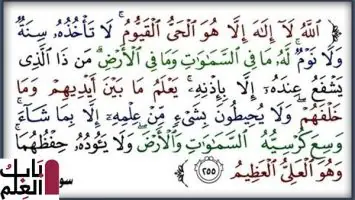 ٱللَّهُ لَآ إِلَٰهَ إِلَّا هُوَ ٱلْحَىُّ ٱلْقَيُّومُ ۚ لَا تَأْخُذُهُۥ سِنَةٌ
وَلَا نَوْمٌ ۚ لَّهُۥ مَا فِى ٱلسَّمَٰوَٰتِ وَمَا فِى ٱلْأَرْضِ ۗ مَن ذَا ٱلَّذِى
يَشْفَعُ عِندَهُۥٓ إِلَّا بِإِذْنِهِۦ ۚ يَعْلَمُ مَا بَيْنَ أَيْدِيهِمْ وَمَا
خَلْفَهُمْ ۖ وَلَا يُحِيطُونَ بِشَىْءٍ مِّنْ عِلْمِهِۦٓ إِلَّا بِمَا شَآءَ ۚ
وَسِعَ كُرْسِيُّهُ ٱلسَّمَٰوَٰتِ وَٱلْأَرْضَ ۖ وَلَا يَـُٔودُهُۥ حِفْظُهُمَا ۚ
وَهُوَ ٱلْعَلِىُّ ٱلْعَظِيمُ ٢٥٥
باب
العلم